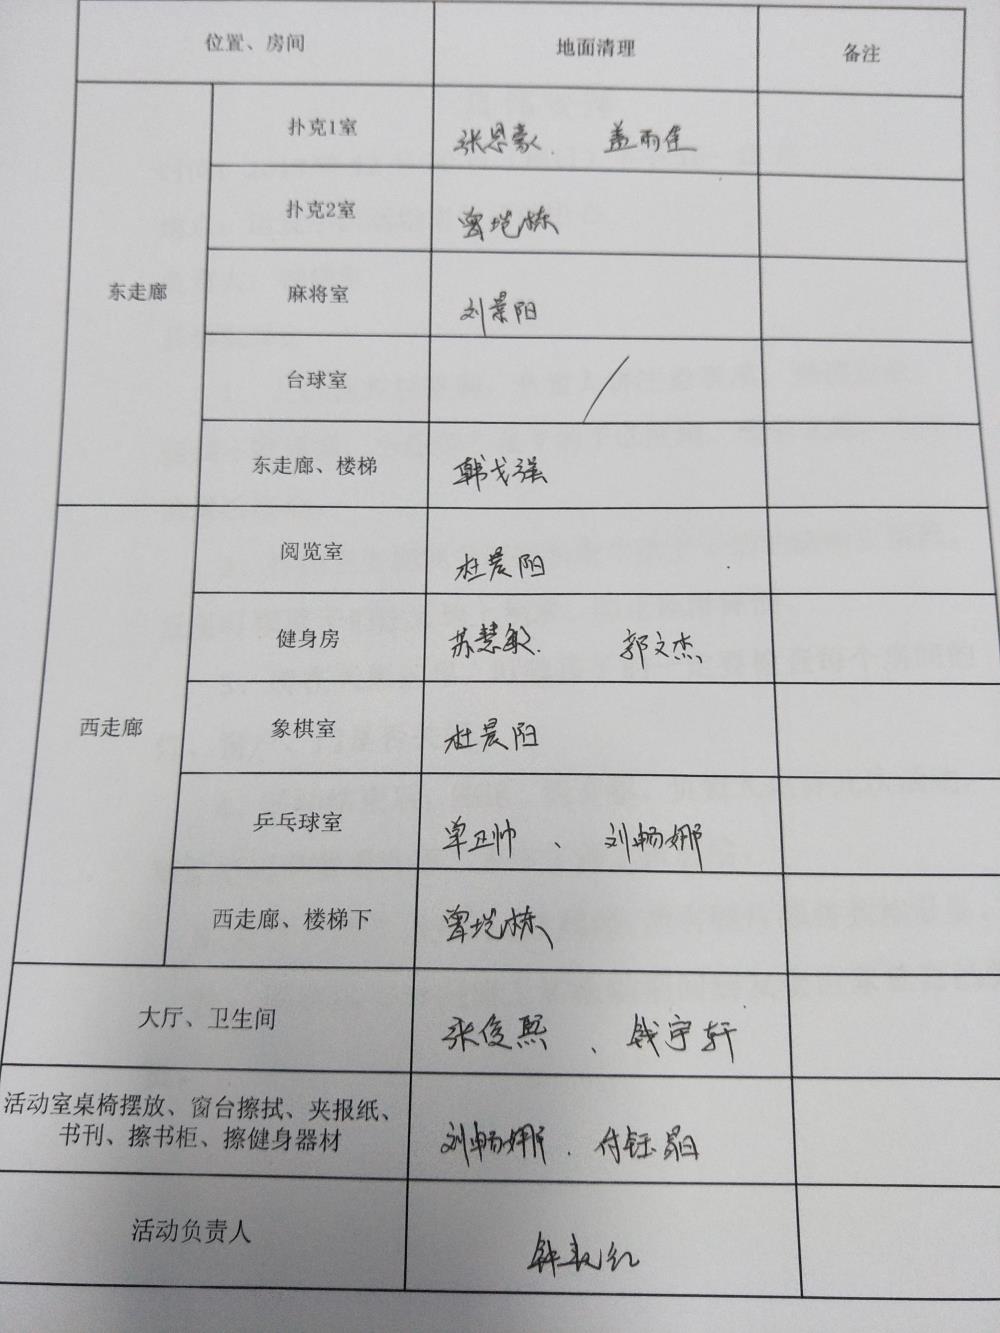 位置、房间 地面清理 备注
东走廊
扑克1室 张恩豪、 盖雨佳
扑克2室 曾垲栋
麻将室 刘景阳
台球室 /
东走廊、楼梯 韩戈强
西走廊
阅览室 杜晨阳
健身房 苏慧敏、 郭文杰
象棋室 杜晨阳
乒乓球室 单正帅 、 刘畅娜
西走廊、楼梯下 曾垲栋
大厅、卫生间 张俊熙 、 钱宇轩
活动室桌椅摆放、窗台擦拭、夹报纸、
书刊、擦书柜、擦健身器材 刘畅娜、付钰晶
活动负责人